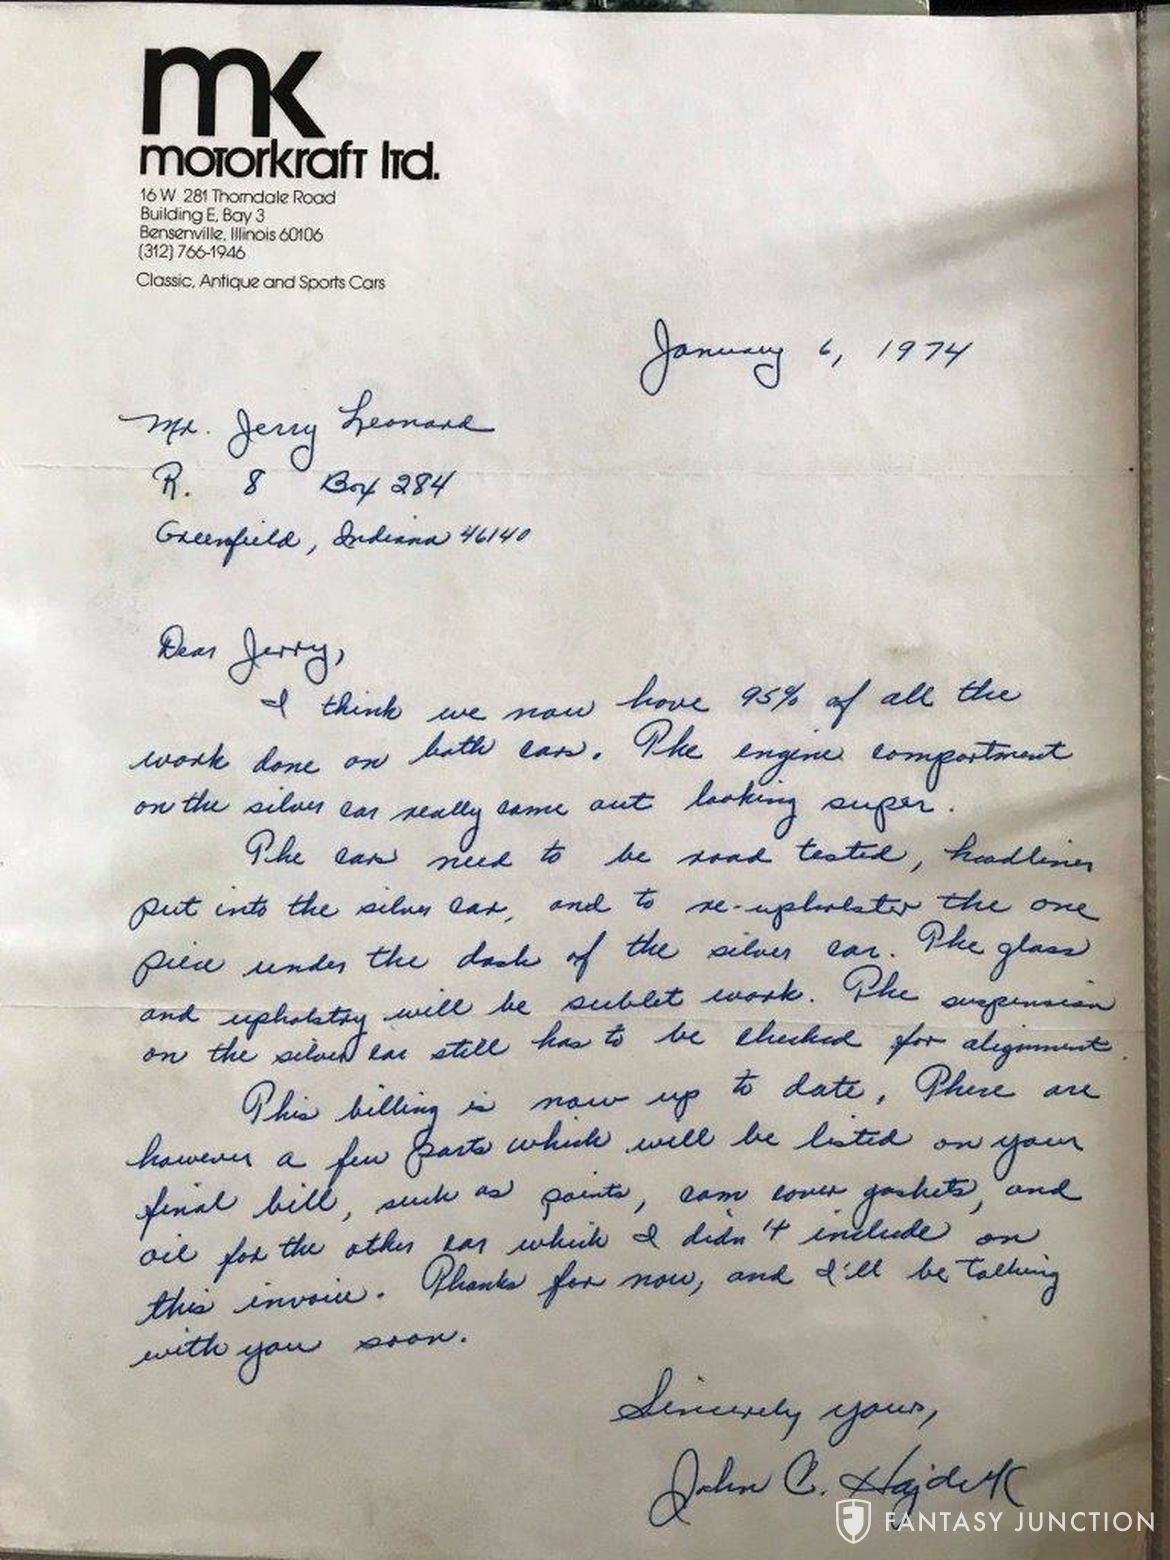 mk
motorkraft ltd.
16 W 281 Thorndale Road
Building E, Bay 3
Bensenville, Illinois 60106
(312) 766-1946
Classic, Antique and Sports Cars
January 6, 1974
Mr. Jerry Leonard
R. 8 Box 284
Greenfield, Indiana 46140
Dear Jerry,
I think we now have 95% of all the
work done on both cars. The engine compartment
on the silver car really came out looking super.
The cars need to be road tested, headliner
put into the silver car, and to re-upholster the one
piece under the dash of the silver car. The glass
and upholstry will be sublet work. The suspension
on the silver car still has to be checked for alignment.
This billing is now up to date, There are
however a few parts which will be listed on your
final bill, such as points, cam cover gaskets, and
oil for the other car which I didn't include on
this invoice. Thanks for now, and I'll be talking
with you soon.
Sincerely yours,
John C. Hajduk
FANTASY JUNCTION